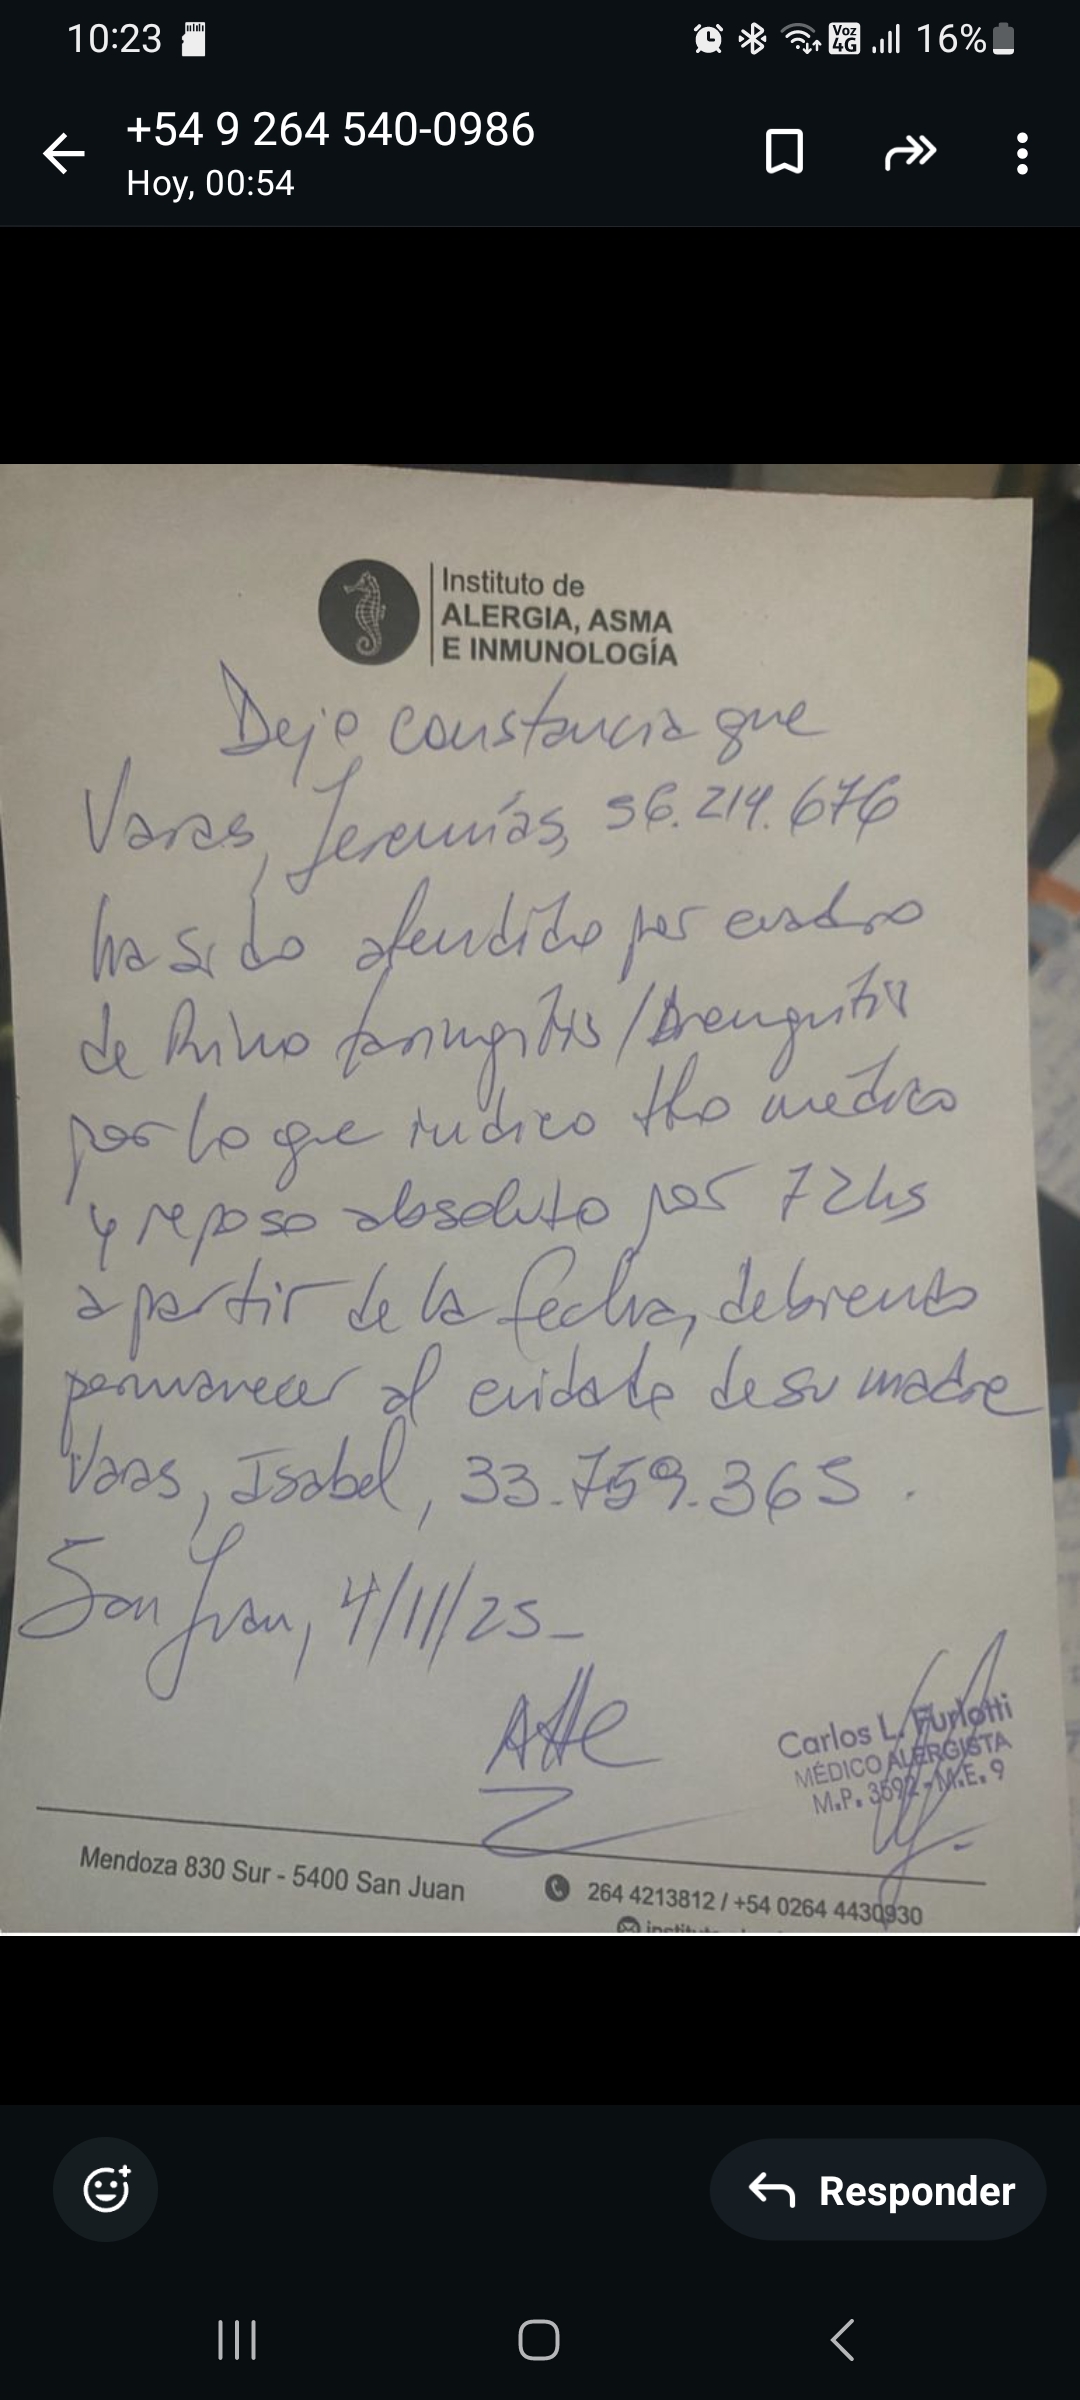 10:23
Voz 4G
16%
+54 9 264 540-0986
Hoy, 00:54
Instituto de
ALERGIA, ASMA
E INMUNOLOGÍA
Dejo constancia que
Varas, Jeremías, 56.214.676
ha sido atendido por cuadro
de Rino faringitis /
por lo que indico tto médico
y reposo absoluto por 72hs
a partir de la fecha, debiendo
permanecer al cuidado de su madre
Varas, Isabel, 33.759.365.
San Juan, 4/11/25_
Atte
Carlos L. Furlotti
MÉDICO ALERGISTA
M.P. 3592 - M.E. 9
Mendoza 830 Sur - 5400 San Juan
264 4213812 / +54 0264 4430930
Responder